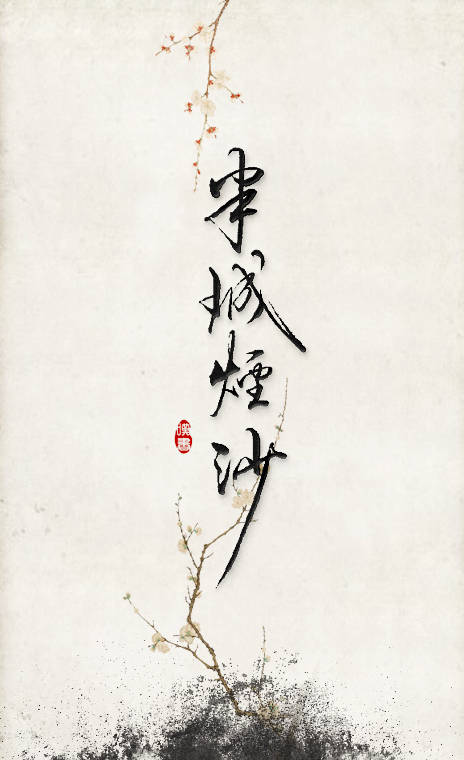 半城煙沙